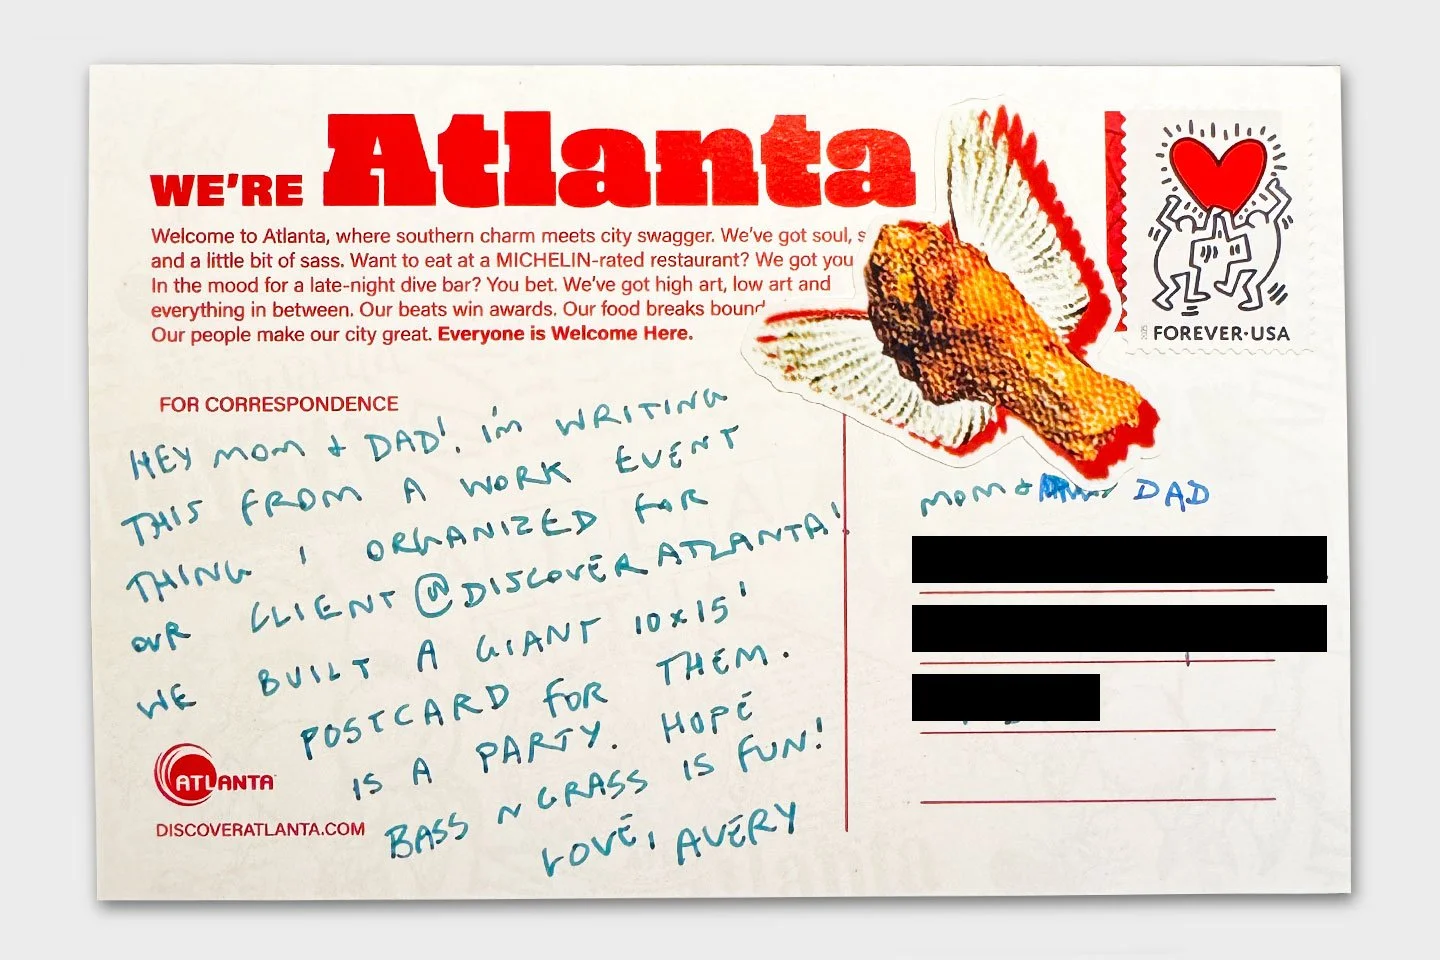 WE'RE Atlanta
Welcome to Atlanta, where southern charm meets city swagger. We've got soul, s
and a little bit of sass. Want to eat at a MICHELIN-rated restaurant? We got you
In the mood for a late-night dive bar? You bet. We've got high art, low art and
everything in between. Our beats win awards. Our food breaks bound
Our people make our city great. Everyone is Welcome Here.
2025
FOREVER·USA
FOR CORRESPONDENCE
HEY MOM & DAD! I'M WRITING
THIS FROM A WORK EVENT
THING I ORGANIZED FOR
OUR CLIENT @DISCOVERATLANTA!
WE BUILT A GIANT 10x15'
POSTCARD FOR THEM.
IS A PARTY. HOPE
BASS N GRASS IS FUN!
LOVE, AVERY
ATLANTA
DISCOVERATLANTA.COM
MOM & DAD